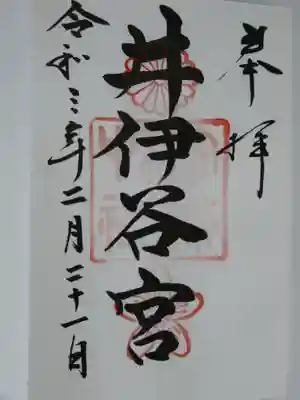 奉拝
井伊谷宮
令和三年二月二十一日